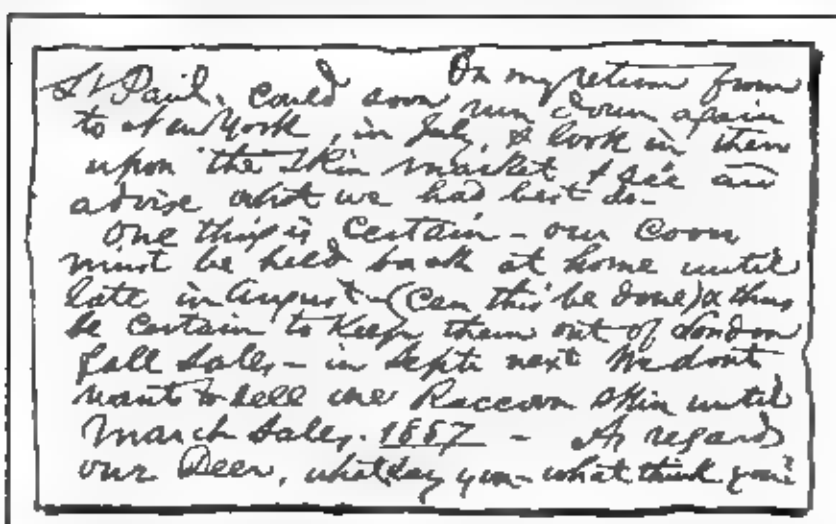 On my return from
St Paul, could soon run down again
to New York, in July, & look in then
upon the Skin market & see and
advise what we had best do—
One thing is Certain — our Coon
must be held back at home until
late in August — (Can this be done) & thus
be certain to keep them out of London
fall Sales — in Septr next We dont
want to sell one Raccoon Skin until
March Sales, 1857 — As regards
our Deer, what say you — what think you?